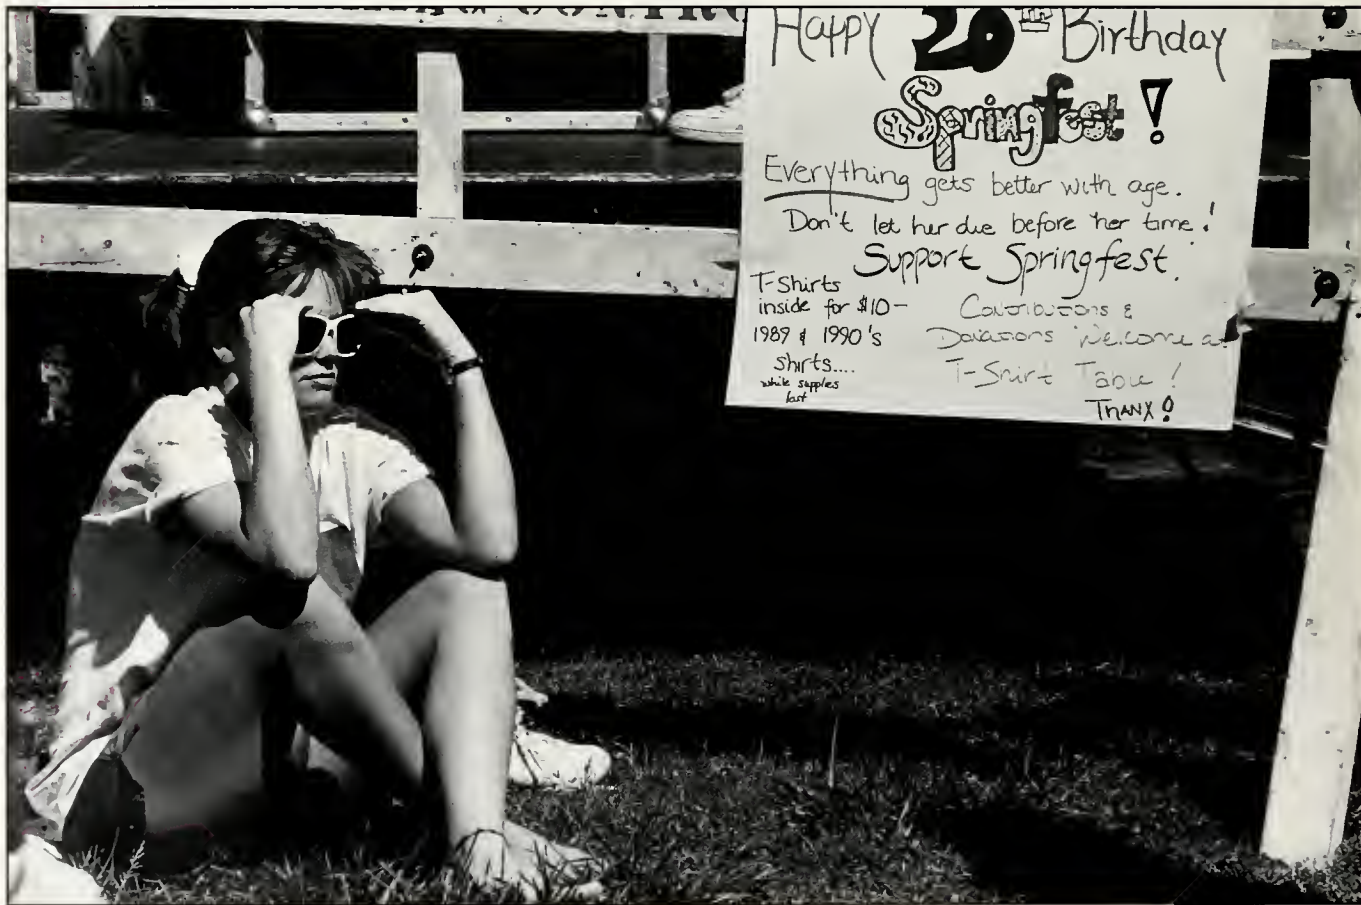 Happy 20th Birthday
Springfest!
Everything gets better with age.
Don't let her die before her time!
Support Springfest.
T-Shirts
inside for $10-
1989 & 1990's
shirts....
while supplies
last
Contributions &
Donations Welcome at
T-Shirt Table!
THANX!